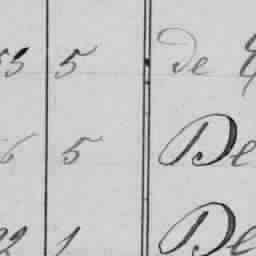 55 5 de
6 5 De
22 1 De